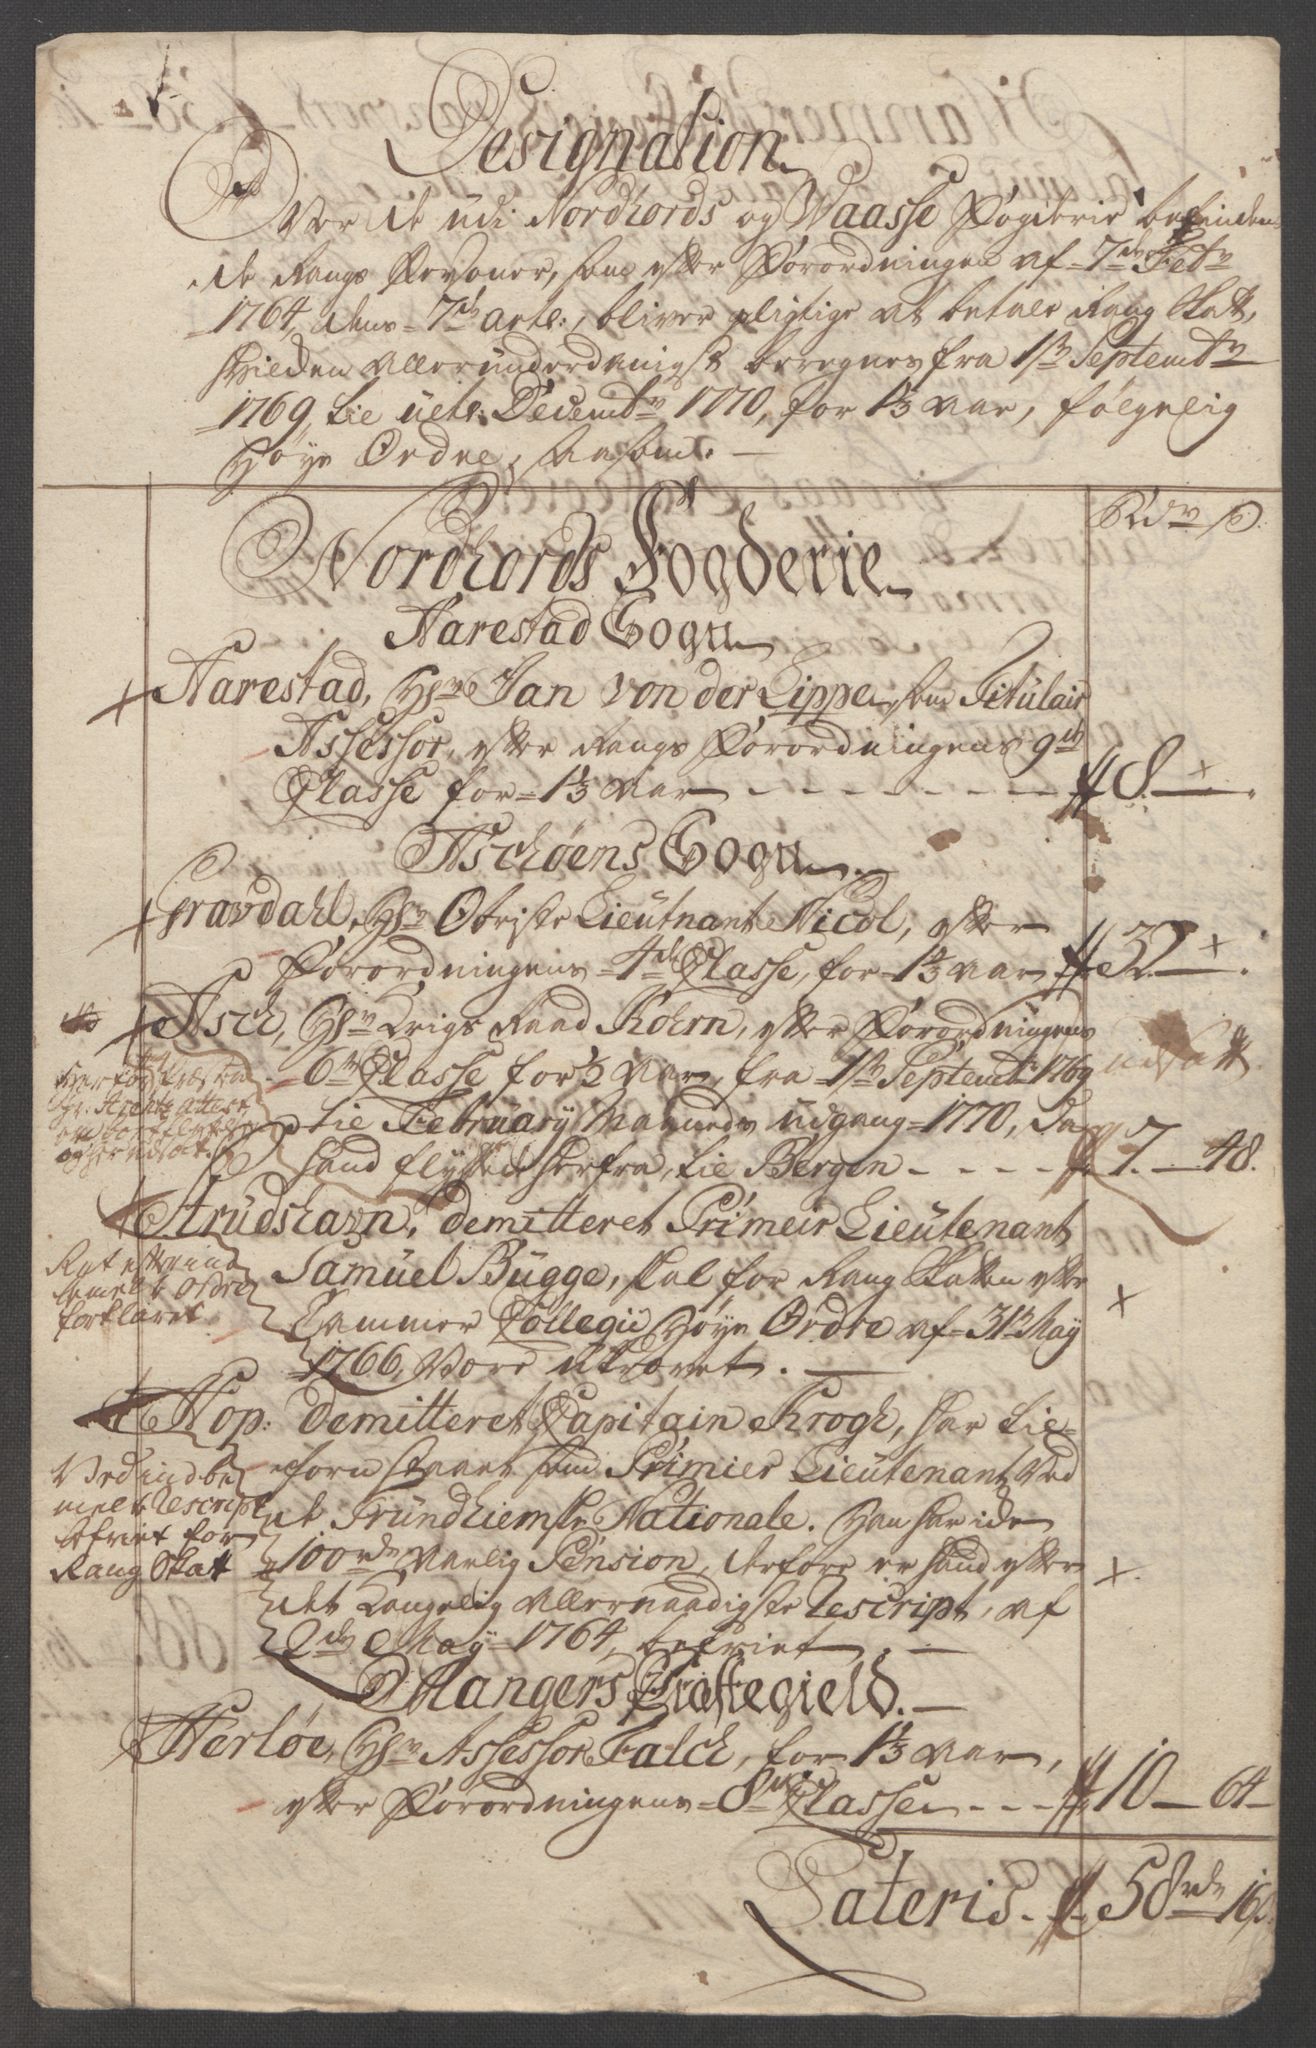 Designation
Over de udi Nordhords og Waasse Fogderie befinden-
de Rangs Persohner, som efter Forordningen af 7de Febr
1764, dens 7de artl:, bliver pligtige at betale Rang Skatt,
hvilden allerunderdanigst beregnes fra 1ste Septembr
1769, til ult: Decembr 1770, for 1⅓ aar, følgelig
høye Ordre, saasom. —
Rdr ß
Nordhords Fogderie
Aarestad Sogn
Aarestad, Hr Jan von der Lippe, som Titulair
Assessor, efter Rangs Forordningens 9de
Classe for 1⅓ aar - - - - - - - 8. —
Aschøens Sogn
Gravdahl, Hr Obriste Lieutnant Nicol, efter
Forordningens 4de Classe, for 1⅓ aar 32. —
Asch, Hr Krigs Raad Kohrn, efter Forordningens
6te Classe for ½ aar, fra 1ste Septembr 1769
til February Maaneds udgang 1770, da
hand flyttede herfra, til Bergen - - - - 7. — 48.
udsatt
og her udsat.
Strudshavn, demitteret Primeir Lieutenant
Samuel Bugge, skal for Rang Skatten efter
Cammer Collegii høye Ordre af 31te May
1766, være ukrævet. —
Rat efter ind
bemelte Ordre
forklaret
Hop: demitteret Capitain Krogh, har til-
forn staaet som Primier Lieutenant ved
det Trundhiemske Nationale. Han har iden
100rdr aarlig Pension, derfore er hand efter
det Kongelig allernaadigste Rescript, af
2den May 1764, befriet. —
Ved indbe
melte Rescript
befriet for
Rang Skat
Mangers Præstegield. —
Herløe, Hr Assessor Falch, for 1⅓ aar,
efter Forordningens 8de Classe - - - 10 — 64 —
Lateris. 58rdr 16ß.